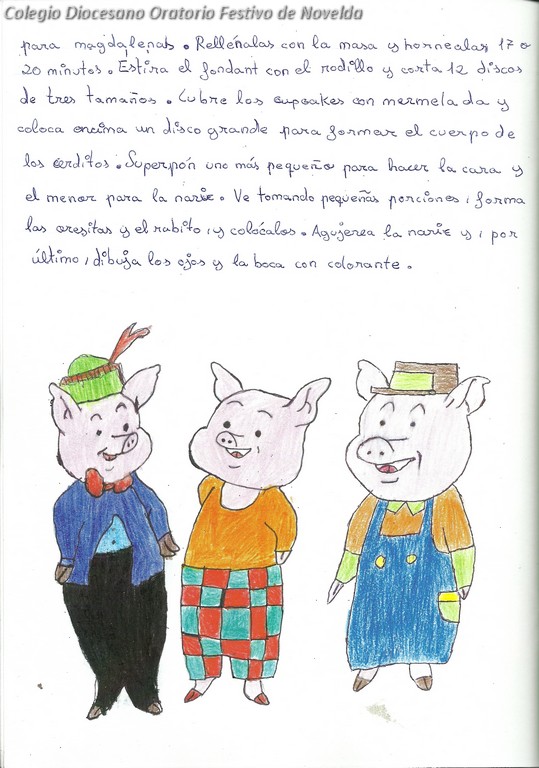 Colegio Diocesano Oratorio Festivo de Novelda
para magdalenas. Rellénalas con la masa y hornealas 17 o
20 minutos. Estira el fondant con el rodillo y corta 12 discos
de tres tamaños. Cubre los cupcakes con mermelada y
coloca encima un disco grande para formar el cuerpo de
los cerditos. Superpón uno más pequeño para hacer la cara y
el menor para la nariz. Ve tomando pequeñas porciones, forma
las orejitas y el rabito, y colócalos. Agujerea la nariz y, por
último, dibuja los ojos y la boca con colorante.